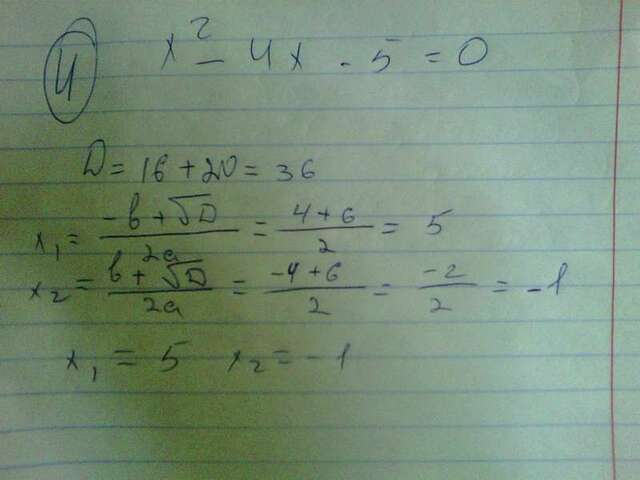 4 x² - 4x - 5 = 0
D = 16 + 20 = 36
x₁ = (-b + √D)/2a = (4 + 6)/2 = 5
x₂ = (b + √D)/2a = (-4 + 6)/2 = -2/2 = -1
x₁ = 5 x₂ = -1